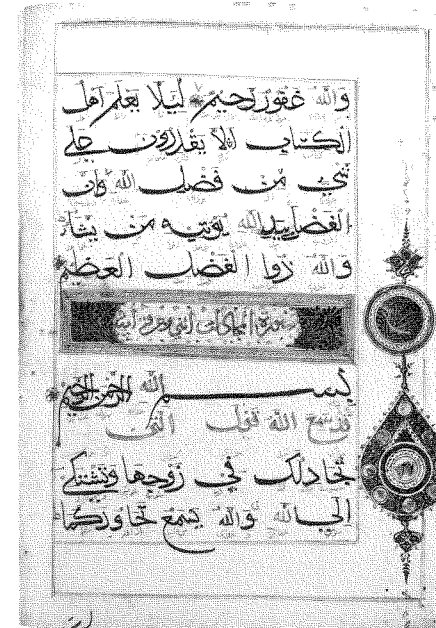 والله غفور رحيم ليلا يعلم اهل
الكتاب الا يقدرون على
شي من فضل الله وان
الفضل بيد الله يوتيه من يشاء
والله ذوا الفضل العظيم
سورة المجادلة اثنى وعشرون آية
بسم الله الرحمن الرحيم
قد سمع الله قول التى
تجادلك في زوجها وتشتكي
الى الله والله يسمع تحاوركما